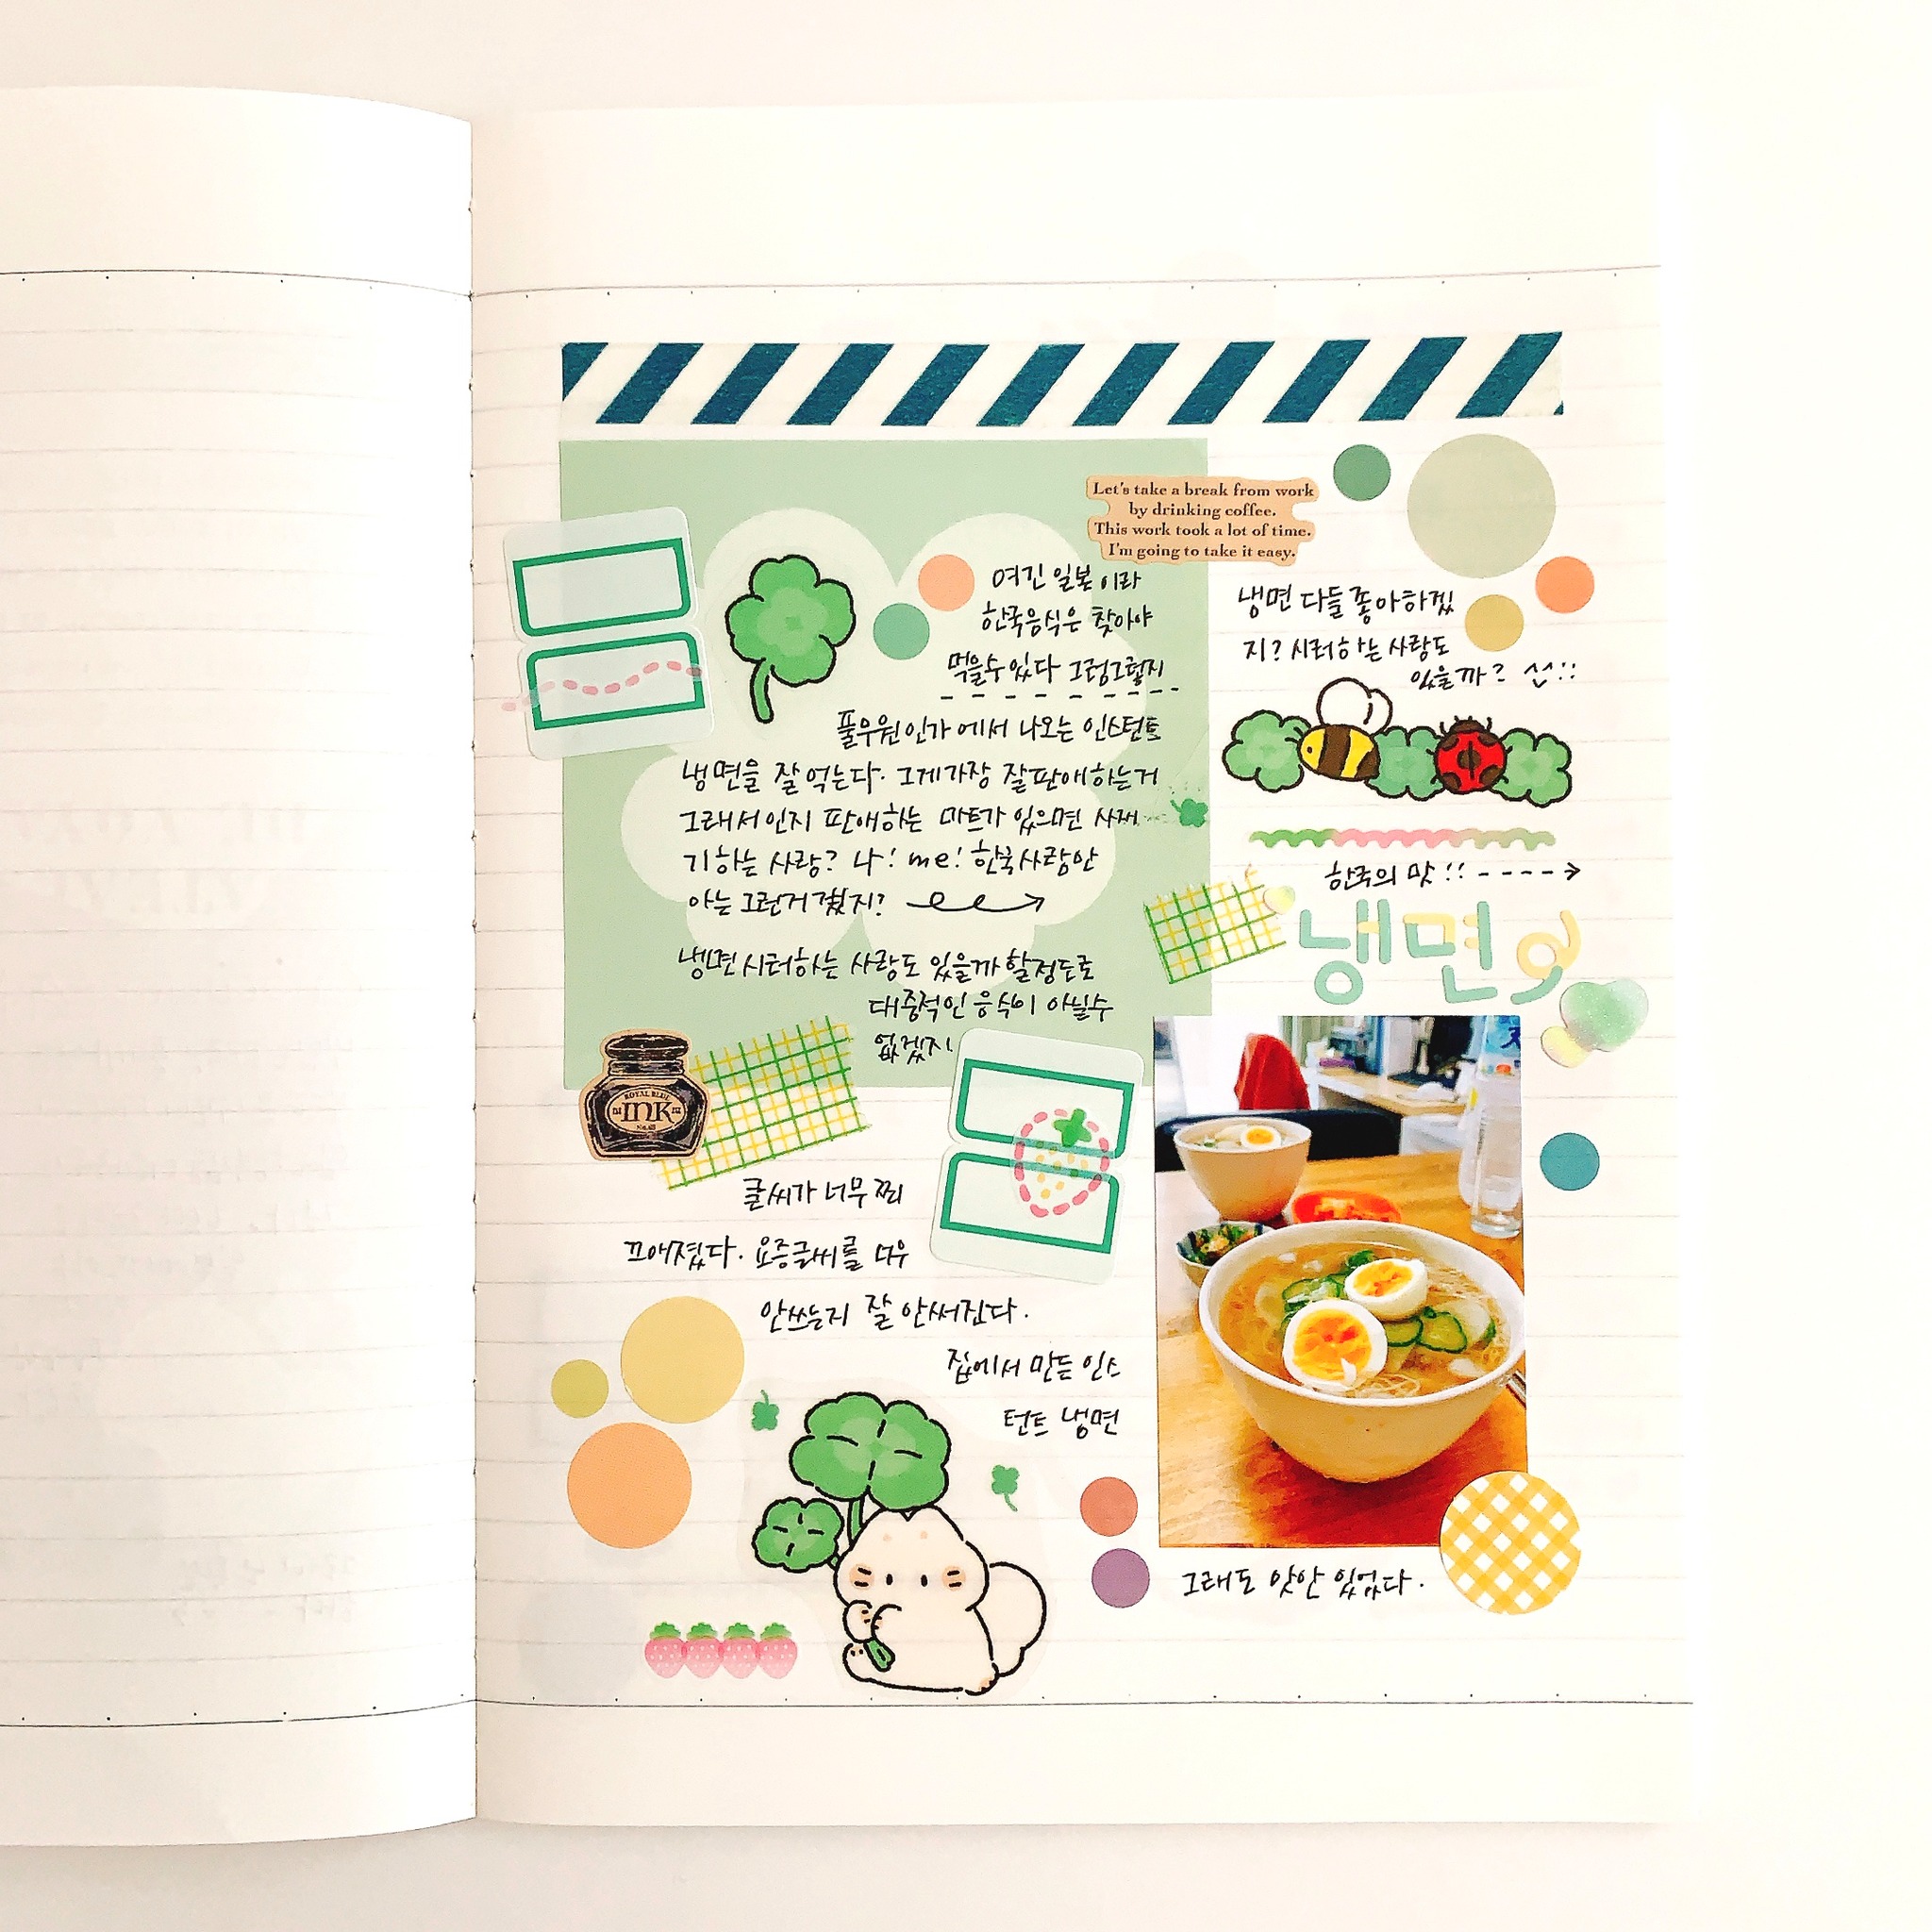 Let's take a break from work
by drinking coffee.
This work took a lot of time.
I'm going to take it easy.
여긴 일본이라
한국음식은 찾아야
먹을수있다 그럼그렇지
풀무원인가에서 나오는 인스턴트
냉면을 잘 먹는다. 그게가장 잘판애하는거
그래서인지 판애하는 마트가 있으면 사재
기하는 사람? 나! me! 한국사람만
아는 그런거겠지?
냉면 시러하는 사람도 있을까할정도로
대중적인 음식이 아닐수
없겠지.
냉면 다들 좋아하겠
지? 시러하는 사람도
있을까?
한국의 맛!!
냉면
ROYAL BLUE
INK
글씨가 너무 찌
끄애졌다. 요즘글씨를 너무
안쓰는지 잘 안써진다.
집에서 만든 인스
턴트 냉면
그래도 맛만 있었다.